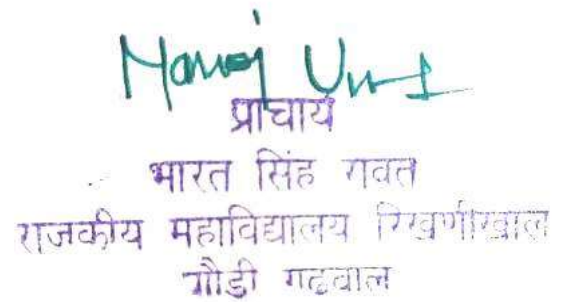 Manoj
प्राचार्य
भारत सिंह रावत
राजकीय महाविद्यालय रिखणीखाल
पौड़ी गढ़वाल